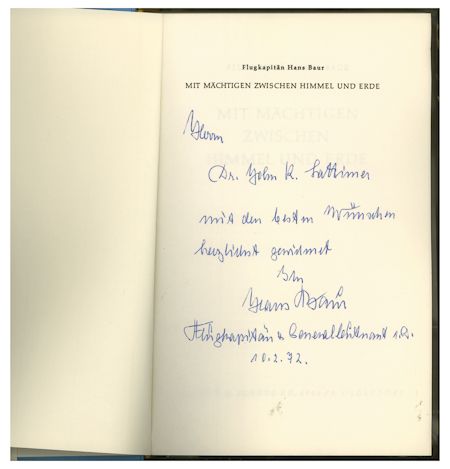 Flugkapitän Hans Baur
MIT MÄCHTIGEN ZWISCHEN HIMMEL UND ERDE
MIT MÄCHTIGEN
ZWISCHEN
HIMMEL UND ERDE
Herrn
Dr. John K. Lattimer
mit den besten Wünschen
herzlichst gewidmet
Ihr
Hans Baur
Flugkapitän u. Generalleutnant a.D.
10.2.72.